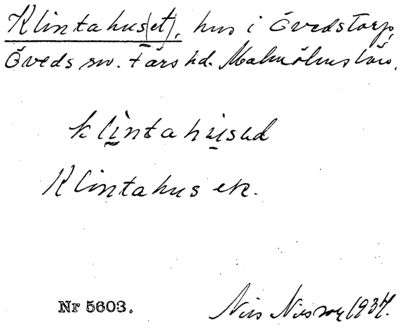 Klintahus(et), hus i Övedstorp,
Öveds sn. Färs hd. Malmöhus län.
klintahused
Klintahus ek.
Nr 5603. Nils Nilsson 1937.